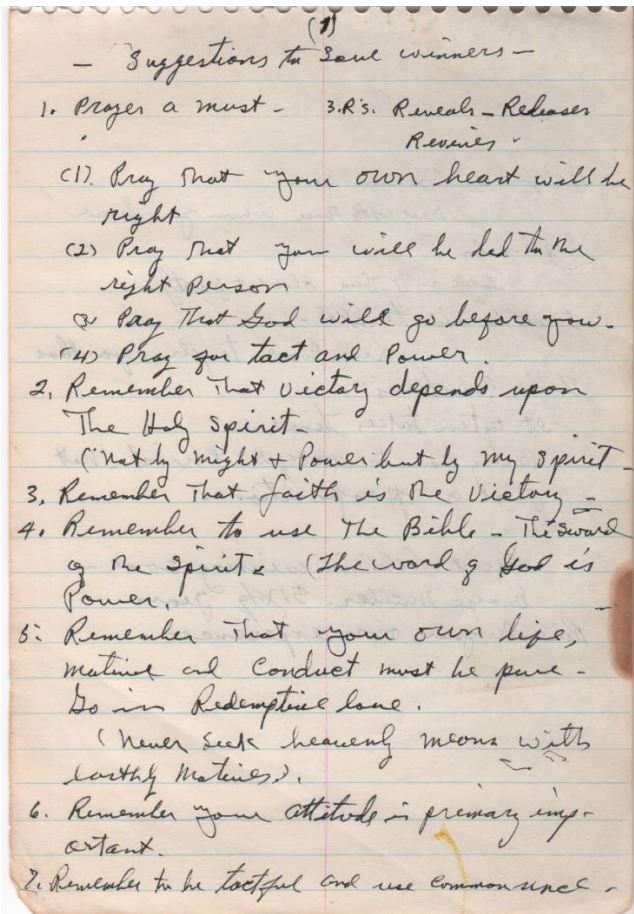 (1)
- Suggestions to Soul winners -
1. Prayer a must - 3.R's. Reveals - Releases
Revives -
(1). Pray that your own heart will be
right
(2) Pray that you will be led to the
right Person
(3) Pray That God will go before you.
(4) Pray for tact and Power.
2. Remember That Victory depends upon
The Holy Spirit -
("Not by might & Power but by my Spirit -
3. Remember That faith is the Victory -
4. Remember to use The Bible - The Sword
of the Spirit. (The word of God is
Power.
5. Remember That your own life,
Motive and Conduct must be pure -
Go in Redemptive love.
(Never Seek heavenly means with
earthly Motives).
6. Remember your attitude is primary imp-
ortant.
7. Remember to be tactful and use common sense -